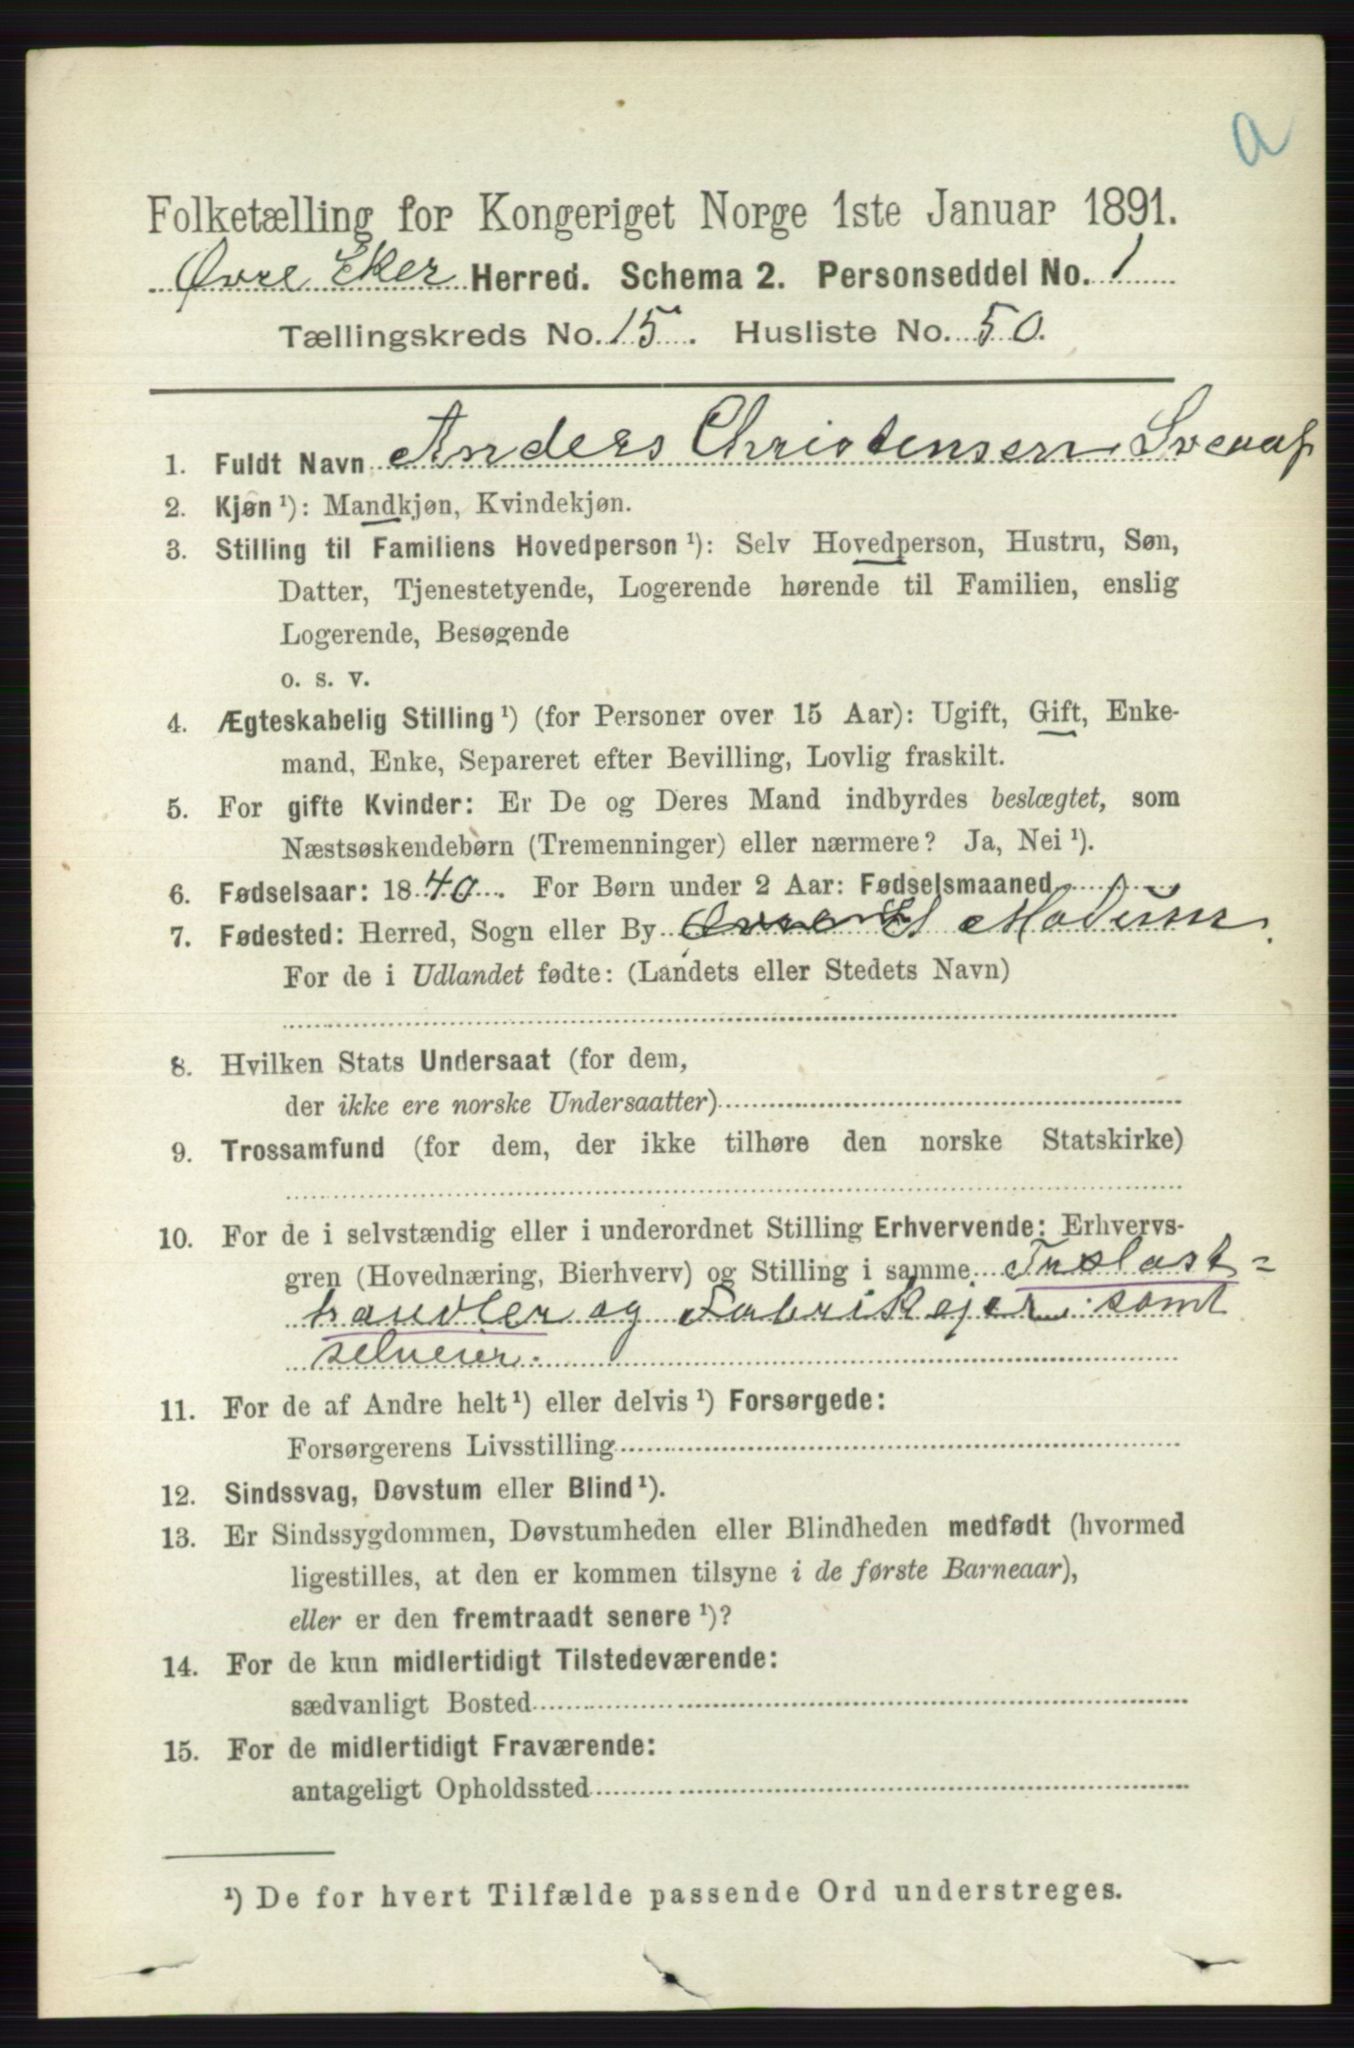 a
Folketælling for Kongeriget Norge 1ste Januar 1891.
Øvre Eker Herred. Schema 2. Personseddel No. 1
Tællingskreds No. 15. Husliste No. 50.
1. Fuldt Navn Anders Christensen
2. Kjøn ¹): Mandkjøn, Kvindekjøn.
3. Stilling til Familiens Hovedperson ¹): Selv Hovedperson, Hustru, Søn,
Datter, Tjenestetyende, Logerende hørende til Familien, enslig
Logerende, Besøgende
o. s. v.
4. Ægteskabelig Stilling ¹) (for Personer over 15 Aar): Ugift, Gift, Enke-
mand, Enke, Separeret efter Bevilling, Lovlig fraskilt.
5. For gifte Kvinder: Er De og Deres Mand indbyrdes beslægtet, som
Næstsøskendebørn (Tremenninger) eller nærmere? Ja, Nei ¹).
6. Fødselsaar: 1840. For Børn under 2 Aar: Fødselsmaaned
7. Fødested: Herred, Sogn eller By Øvre E Modum.
For de i Udlandet fødte: (Landets eller Stedets Navn)
8. Hvilken Stats Undersaat (for dem,
der ikke ere norske Undersaatter)
9. Trossamfund (for dem, der ikke tilhøre den norske Statskirke)
10. For de i selvstændig eller i underordnet Stilling Erhvervende: Erhvervs-
gren (Hovednæring, Bierhverv) og Stilling i samme Trælast=
handler og Fabrikejer samt
selveier.
11. For de af Andre helt ¹) eller delvis ¹) Forsørgede:
Forsørgerens Livsstilling
12. Sindssvag, Døvstum eller Blind ¹).
13. Er Sindssygdommen, Døvstumheden eller Blindheden medfødt (hvormed
ligestilles, at den er kommen tilsyne i de første Barneaar),
eller er den fremtraadt senere ¹)?
14. For de kun midlertidigt Tilstedeværende:
sædvanligt Bosted
15. For de midlertidigt Fraværende:
antageligt Opholdssted
¹) De for hvert Tilfælde passende Ord understreges.